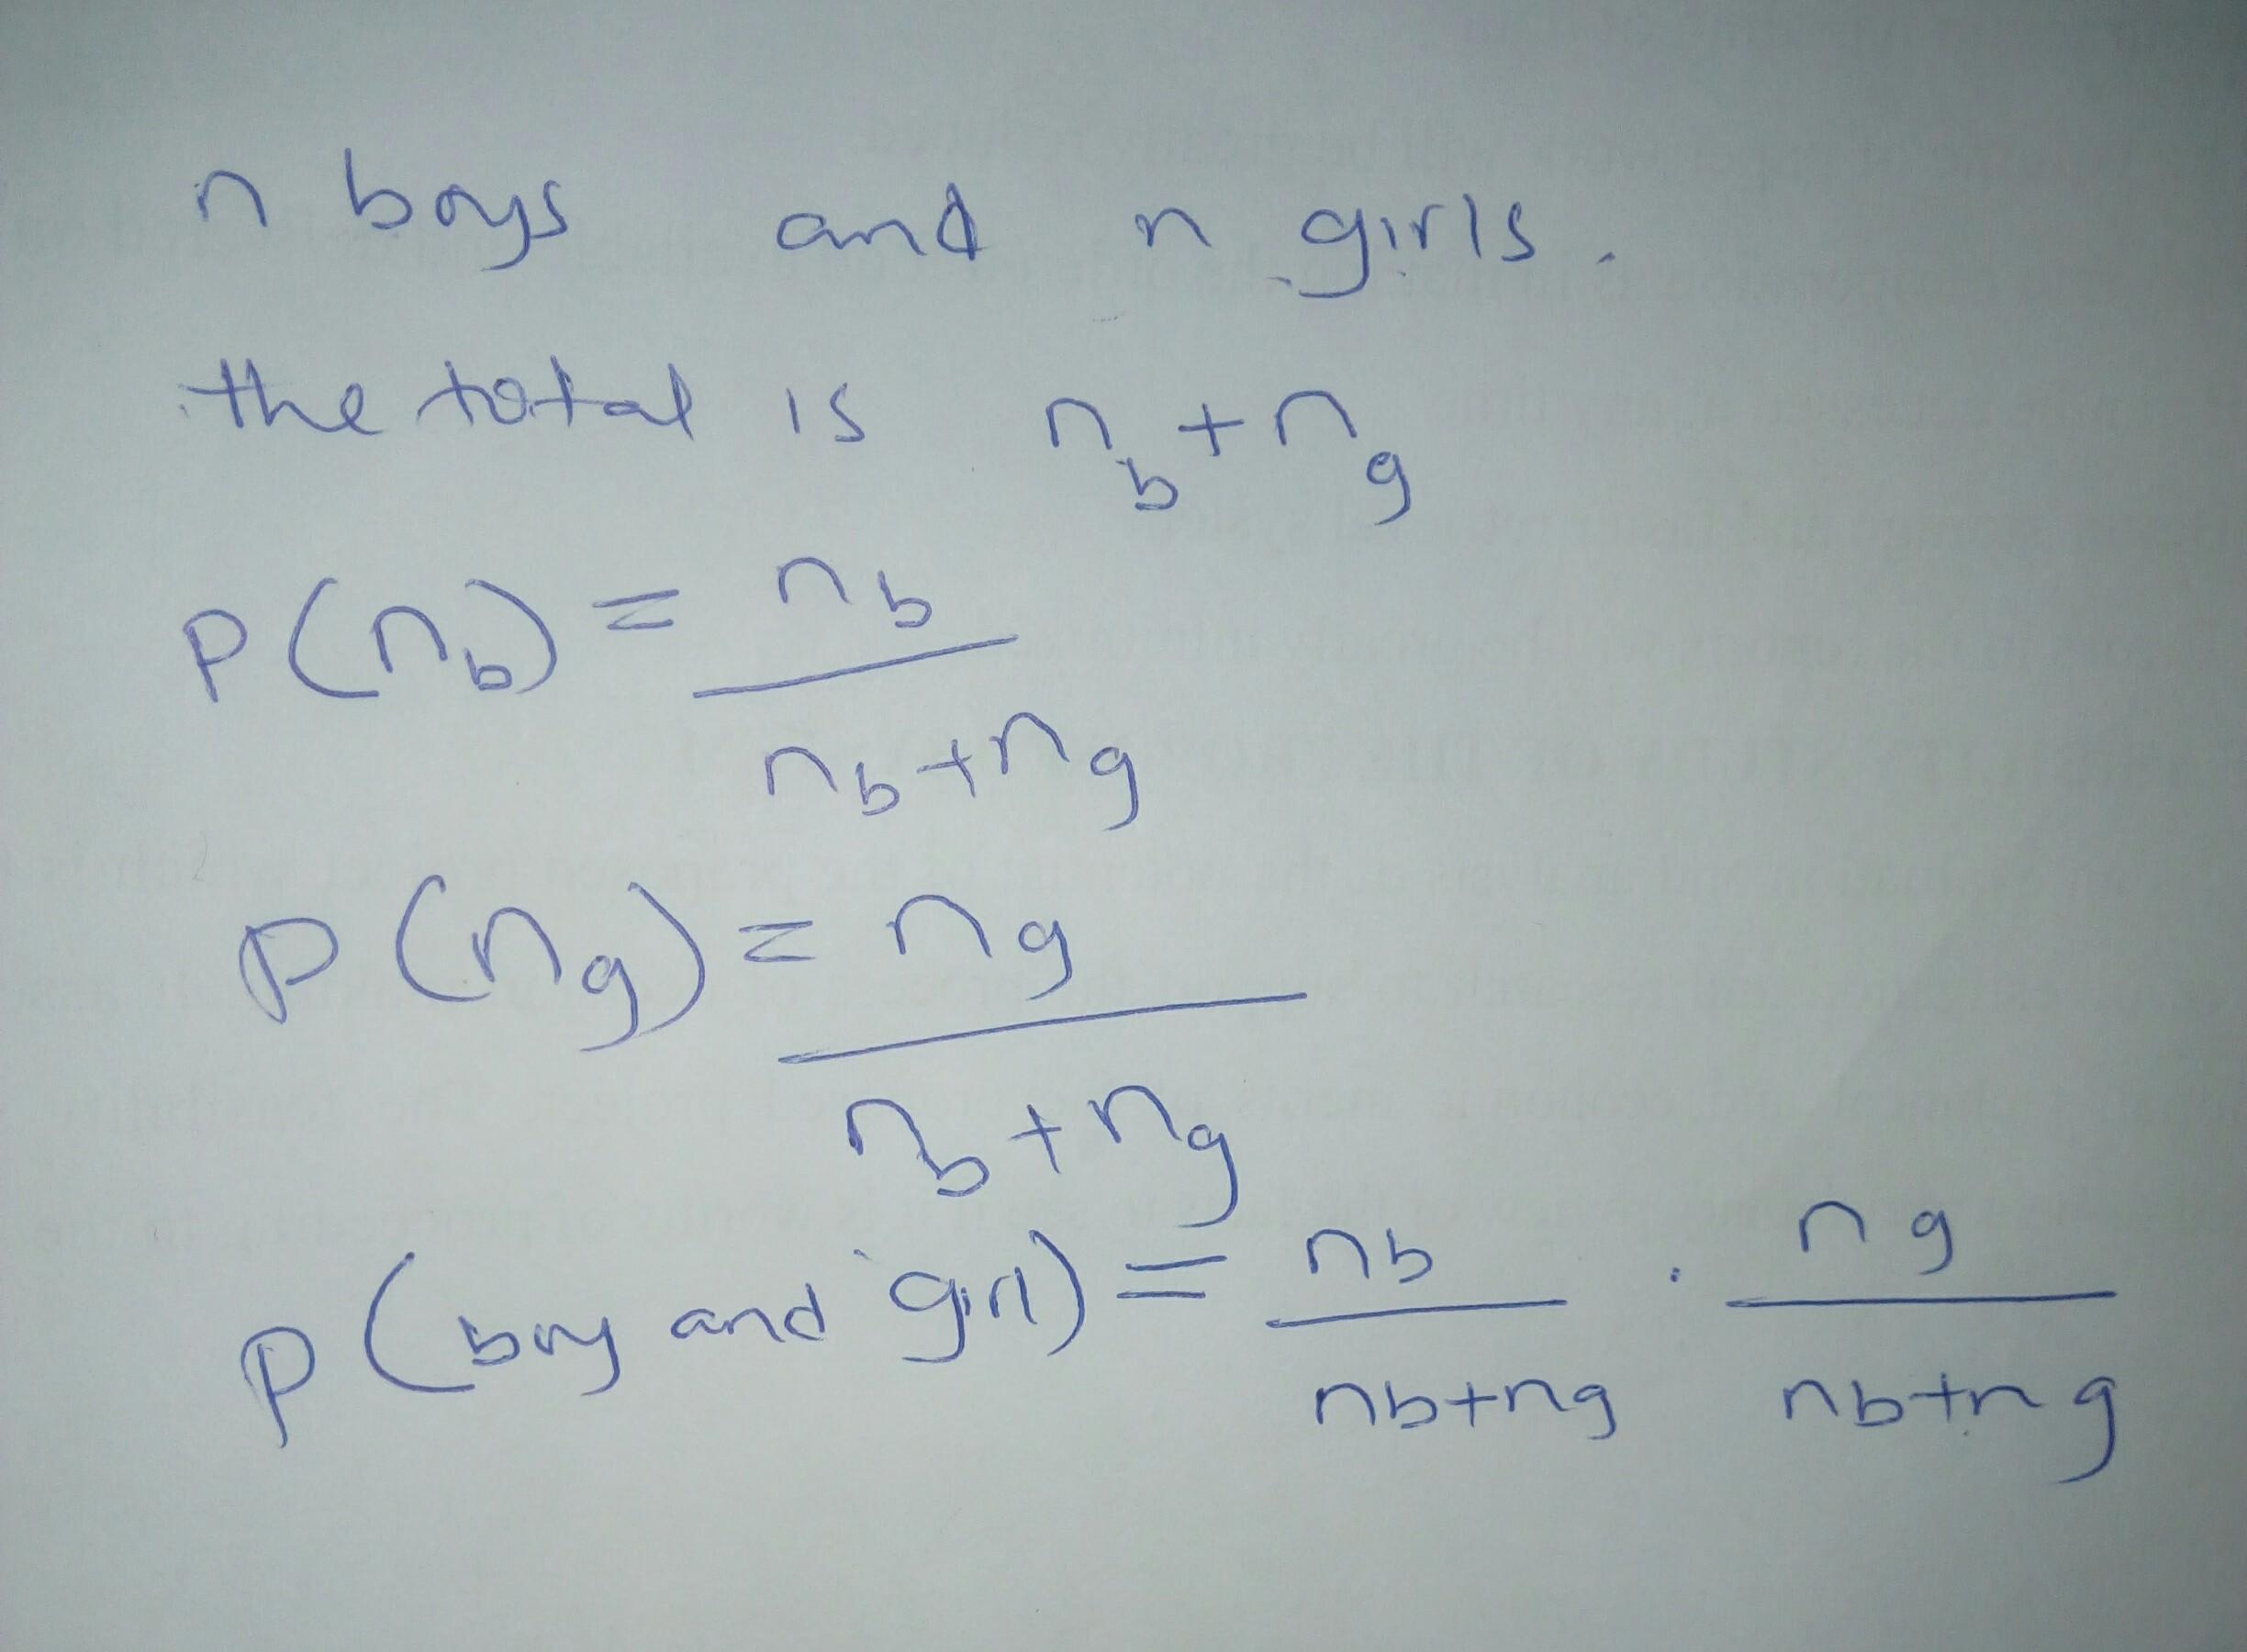 n boys and n girls.
the total is n_b + n_g
P(n_b) = n_b / (n_b + n_g)
P(n_g) = n_g / (n_b + n_g)
P(boy and girl) = n_b / (n_b + n_g) . n_g / (n_b + n_g)